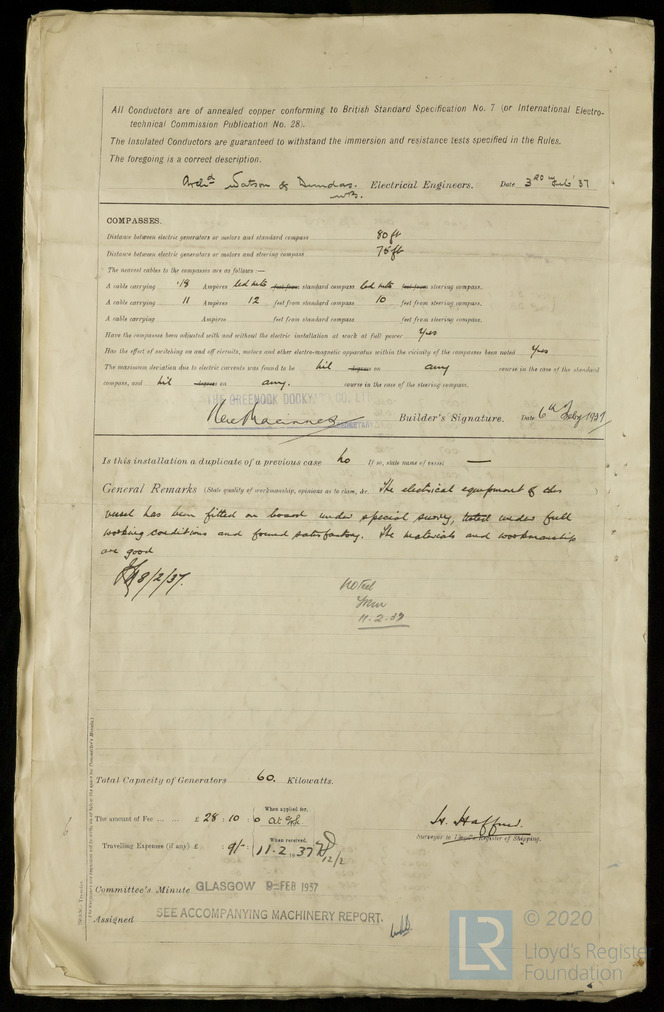 All Conductors are of annealed copper conforming to British Standard Specification No. 7 (or International Electro-
technical Commission Publication No. 28).
The Insulated Conductors are guaranteed to withstand the immersion and resistance tests specified in the Rules.
The foregoing is a correct description.
Archd Watson & Dundas. Electrical Engineers. Date 3rd Feb' 37
COMPASSES.
Distance between electric generators or motors and standard compass 80 ft
Distance between electric generators or motors and steering compass 75 ft
The nearest cables to the compasses are as follows:—
A cable carrying .18 Ampères led into feet from standard compass led into feet from steering compass.
A cable carrying 11 Ampères 12 feet from standard compass 10 feet from steering compass.
A cable carrying Ampères feet from standard compass feet from steering compass.
Have the compasses been adjusted with and without the electric installation at work at full power Yes
Has the effect of switching on and off circuits, motors and other electro-magnetic apparatus within the vicinity of the compasses been noted Yes
The maximum deviation due to electric currents was found to be Nil degrees on any course in the case of the standard
compass, and Nil degrees on any. course in the case of the steering compass.
THE GREENOCK DOCKY CO. LT
Builder's Signature. Date 6th Feby 1937
Is this installation a duplicate of a previous case No If so, state name of vessel —
General Remarks (State quality of workmanship, opinions as to class, &c. The electrical equipment of this )
vessel has been fitted on board under special survey, tested under full
working conditions and found satisfactory. The materials and workmanship
are good
8/2/37.
Noted
11.2.37
Total Capacity of Generators 60. Kilowatts.
The amount of Fee ... ... £ 28 : 10 : 0 When applied for,
Travelling Expenses (if any) £ : 9/- : When received, 11.2.1937 12/2
Surveyor to Lloyd's Register of Shipping.
Committee's Minute GLASGOW 9-FEB 1937
Assigned SEE ACCOMPANYING MACHINERY REPORT.
LR © 2020
Lloyd's Register
Foundation